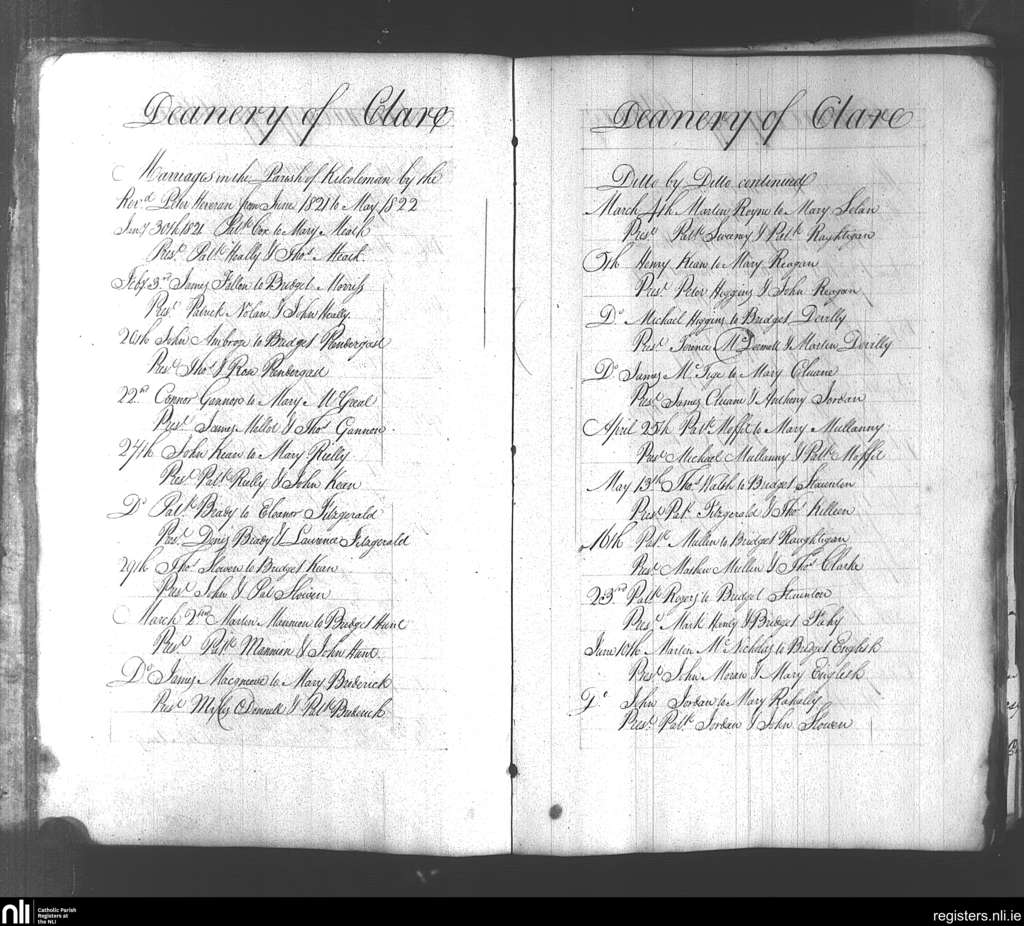 Deanery of Clare
Marriages in the Parish of Kilcoleman by the
Revd. Peter Heveran from June 1821 to May 1822
Jany 30th 1821 Patk. Cox to Mary
Prest. Patk. Heally & Thos.
Feby 3rd James Fallon to Bridget Morriss
Prest. Patrick Nolan & John Heally
20th John Ambrose to Bridget Prendergast
Prest. Thos. & Rose Prendergast
22nd Connor Gannon to Mary McGreal
Prest. James & Thos. Gannon
27th John Kean to Mary Reilly
Prest. Patk. Reilly & John Kean
Do. Patk. Brady to Eleanor Fitzgerald
Prest. Denis Brady & Laurence Fitzgerald
29th Thos. Slowen to Bridget Kean
Prest. John & Pat Slowen
March 2nd Martin Mannion to Bridget Hunt
Prest. Patk. Mannion & John Hunt
Do. James to Mary Broderick
Prest. Myles O'Donnell & Patk. Broderick
Deanery of Clare
Ditto by Ditto continued
March 4th Martin Royne to Mary Solan
Prest. Patk. Sweeny & Patk. Raghtigan
5th Henry Kean to Mary Reagan
Prest. Peter Higgins & John Reagan
Do. Michael Higgins to Bridget Devilly
Prest. Terence McDermott & Martin Devilly
Do. James McTige to Mary Cluane
Prest. James Cluane & Anthony Jordan
April 25th Patk. Moffit to Mary Mullanny
Prest. Michael Mullanny & Patk. Moffit
May 13th Thos. Walsh to Bridget Staunton
Prest. Patk. Fitzgerald & Thos. Killeen
16th Patk. Mullen to Bridget Raughtigan
Prest. Mathew Mullen & Thos. Clarke
23rd Patk. Rogers to Bridget Staunton
Prest. Mark Henly & Bridget Fahy
June 10th Martin McNicholas to Bridget English
Prest. John Moran & Mary English
John Jordan to Mary
Prest. Patk. Jordan & John Slowen
nli
Catholic Parish
Registers at
the NLI
registers.nli.ie